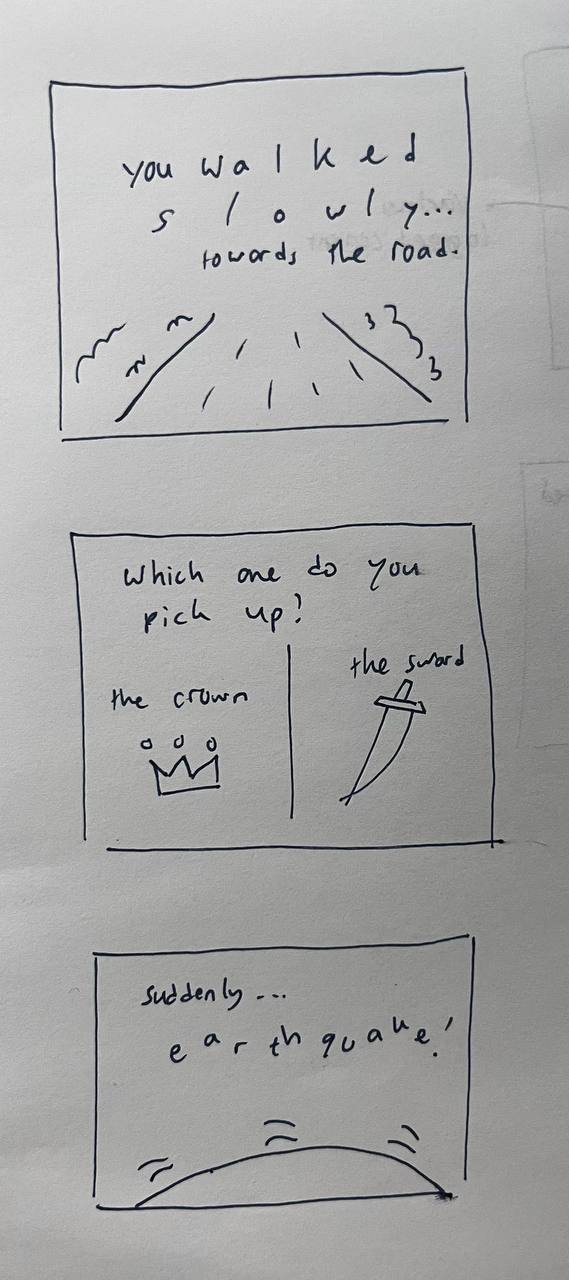 you walked
slowly...
towards the road.
Which one do you
pick up?
the crown
the sword
suddenly...
earthquake!